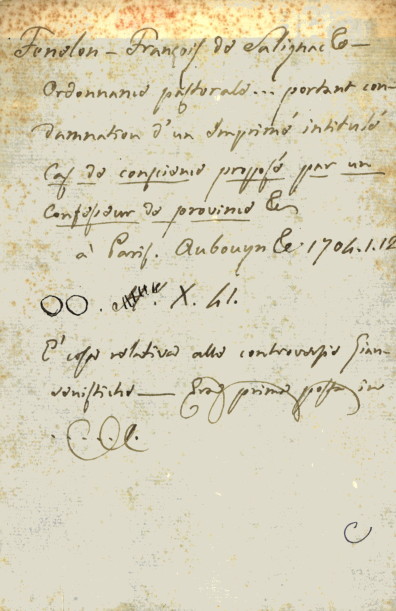 Fenelon - François de Salignac &c -
Ordonnance pastorale... portant con-
damnation d'un Imprimé intitulé
Cas de conscience proposé par un
Confesseur de province &c
à Paris. Aubouyn &c 1704. 1. 12
OO . X. 41.
E' cosa relativa alle controversie Gian-
senistiche — Era prima posta in